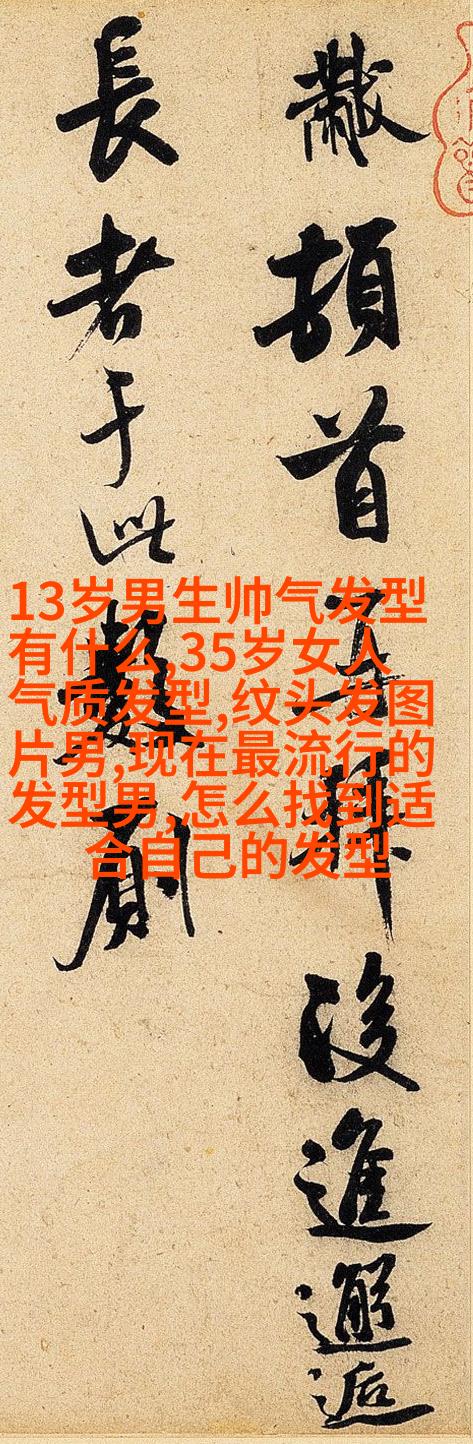 黻頓首再拜後進邂逅
長者于此數廁
13岁男生帅气发型
有什么,35岁女人
气质发型,纹头发图
片男,现在最流行的
发型男,怎么找到适
合自己的发型